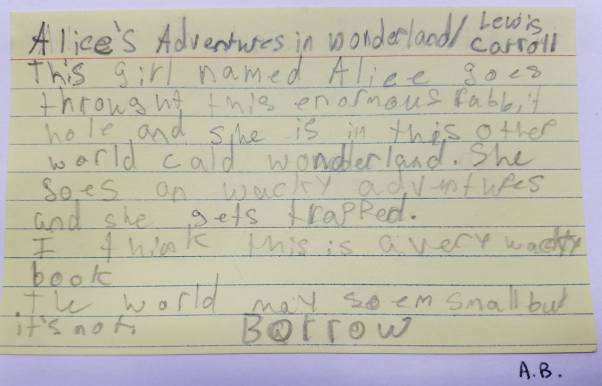 Alice's Adventures in wonderland/ Lewis Carroll
This girl named Alice goes
throught this enormous rabbit
hole and she is in this other
world cald wonderland. She
goes on wacky adventures
and she gets trapped.
I think this is a very wacky
book
the world may soem small but
it's not.
Borrow
A.B.